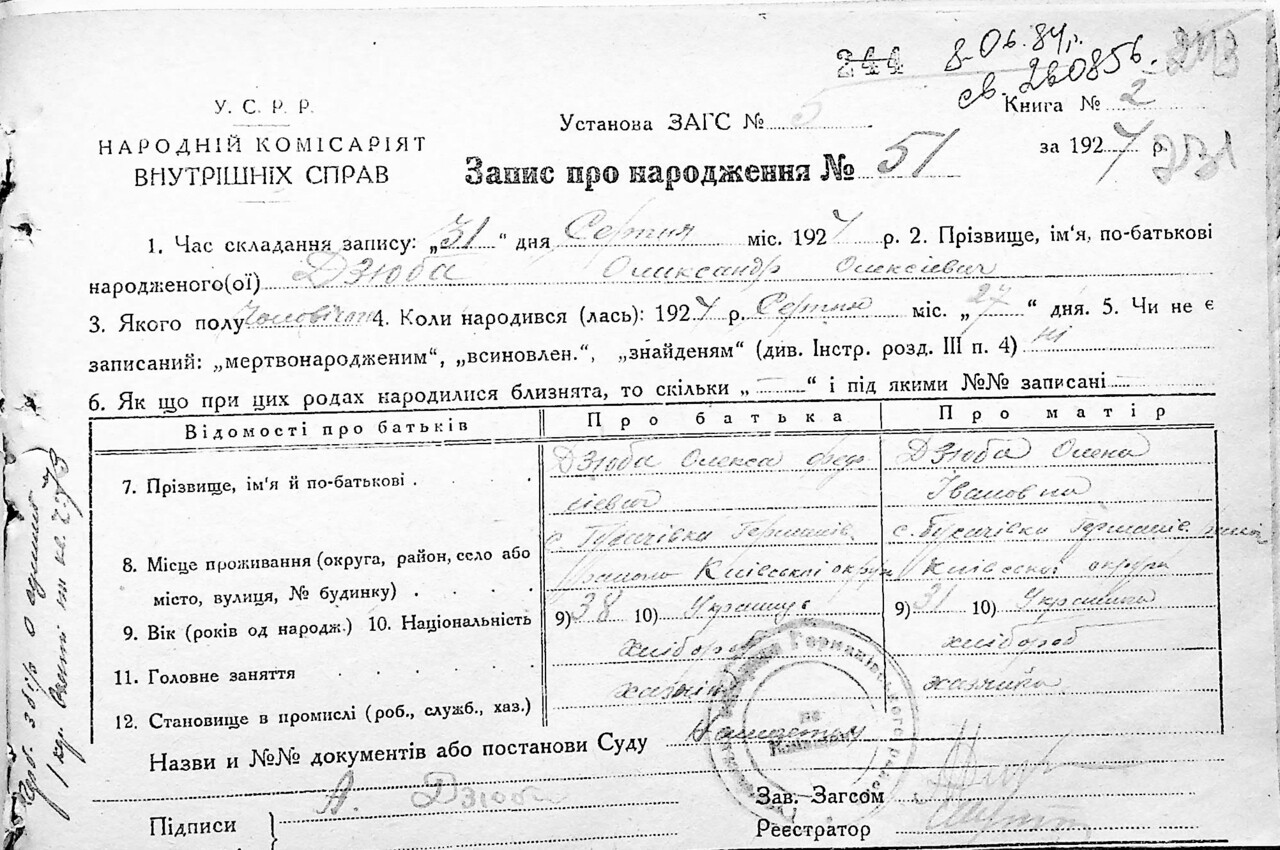 244 8.06.84 г. 243
св. 260856.
У. С. Р. Р.
НАРОДНІЙ КОМІСАРІЯТ
ВНУТРІШНІХ СПРАВ
Установа ЗАГС № 5
Книга № 2
Запис про народження № 51
за 1924 р. 231
1. Час складання запису: „31“ дня Серпня міс. 1924 р. 2. Прізвище, ім'я, по-батькові
народженого(ої) Дзюба Олександр Олексіевич
3. Якого полу 4. Коли народився (лась): 1924 р. Серпня міс. „27“ дня. 5. Чи не є
записаний: „мертвонародженим“, „всиновлен.“, „знайденям“ (див. Інстр. розд. III п. 4) ні
6. Як що при цих родах народилися близнята, то скільки „—“ і під якими №№ записані —
Відомості про батьків Про батька Про матір
7. Прізвище, ім'я й по-батькові Дзюба Олекса Дзюба Олена
Івановна
8. Місце проживання (округа, район, село або
місто, вулиця, № будинку) Київської округи Київської округи
9. Вік (років од народж.) 10. Національність 9) 38 10) Украинец 9) 31 10) Украинка
11. Головне заняття хлібороб хлібороб
12. Становище в промислі (роб., служб., хаз.) хазяін хазяйка
Назви и №№ документів або постанови Суду
Підписи А. Дзюба
Зав. Загсом
Реєстратор